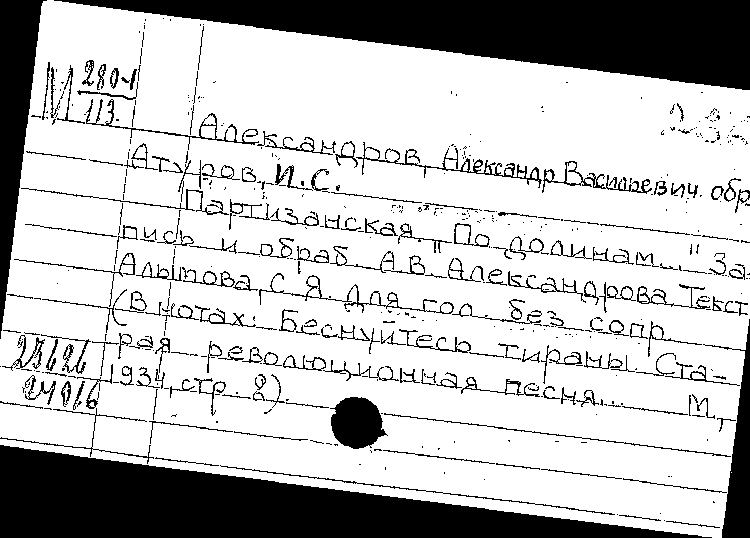 М 280-1
113.
Александров, Александр Васильевич. обр
Атуров, И.С.
Партизанская. "По долинам..." За-
пись и обраб. А.В. Александрова. Текст
Алымова, С.Я. Для гол. без сопр.
(В нотах: Беснуйтесь тираны. Ста-
рая революционная песня... М.,
1934, стр. 2).
23626
24016